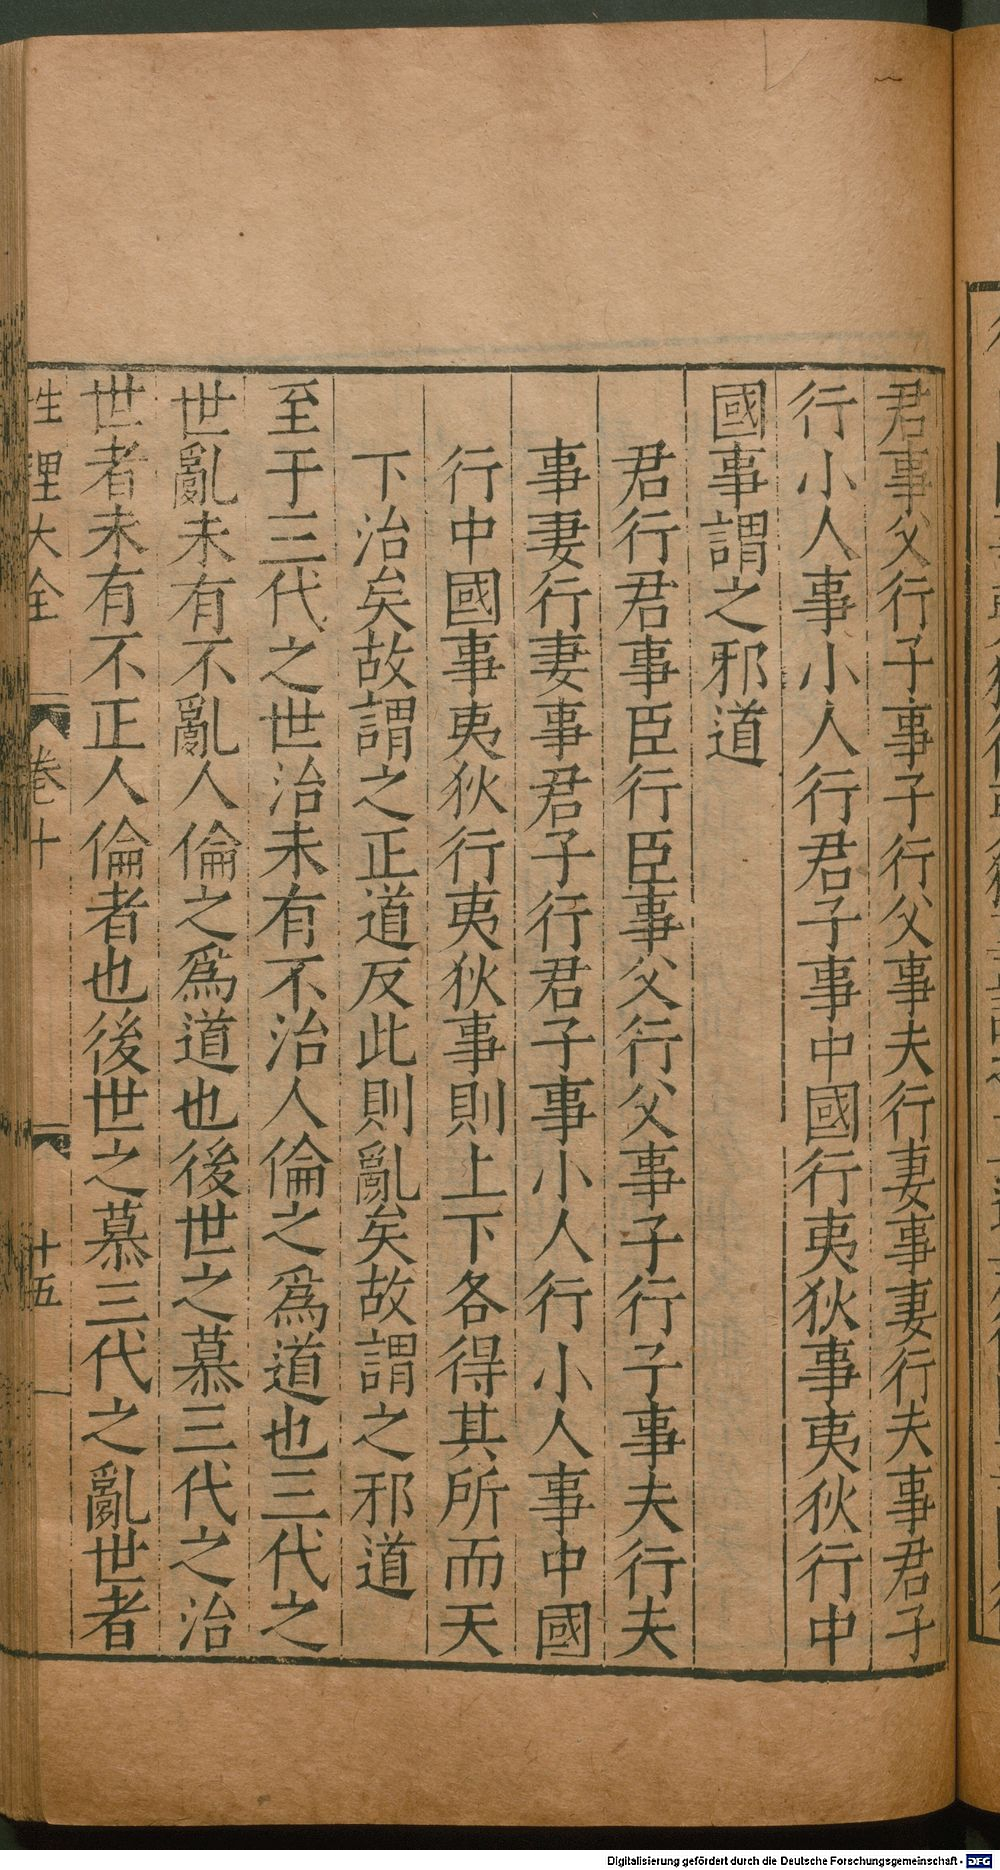 君事父行子事子行父事夫行妻事妻行夫事君子
行小人事小人行君子事中國行夷狄事夷狄行中
國事謂之邪道
君行君事臣行臣事父行父事子行子事夫行夫
事妻行妻事君子行君子事小人行小人事中國
行中國事夷狄行夷狄事則上下各得其所而天
下治矣故謂之正道反此則亂矣故謂之邪道
至于三代之世治未有不治人倫之爲道也三代之
世亂未有不亂人倫之爲道也後世之慕三代之治
世者未有不正人倫者也後世之慕三代之亂世者
性理大全 卷十 十五
Digitalisierung gefördert durch die Deutsche Forschungsgemeinschaft - DFG